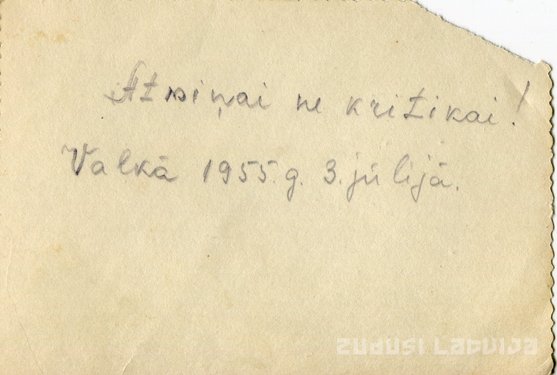 Atmiņai ne kritikai!
Valkā 1955.g. 3.jūlijā.
ZUDUSI LATVIJA